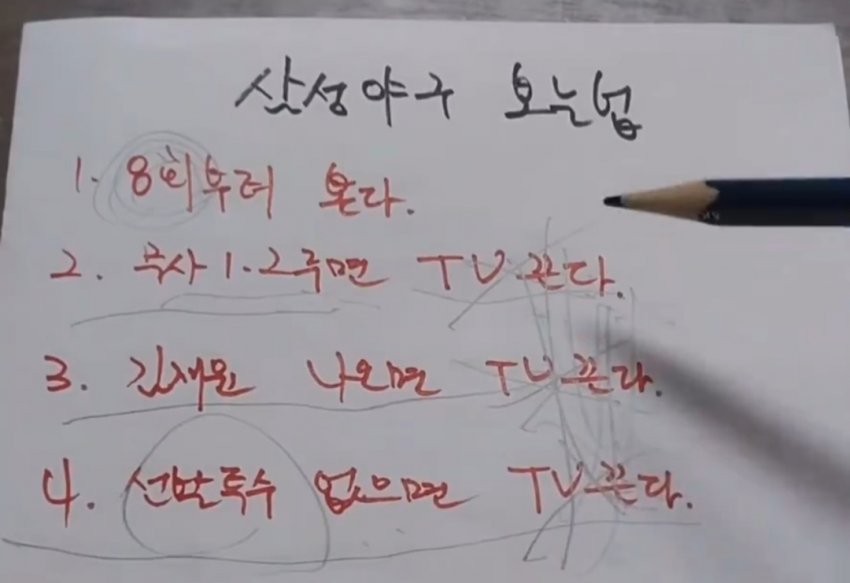 삼성야구 보는법
1. 8회부터 본다.
2. 무사 1.2루면 TV 끈다.
3. 김재윤 나오면 TV 끈다.
4. 선발투수 없으면 TV 끈다.